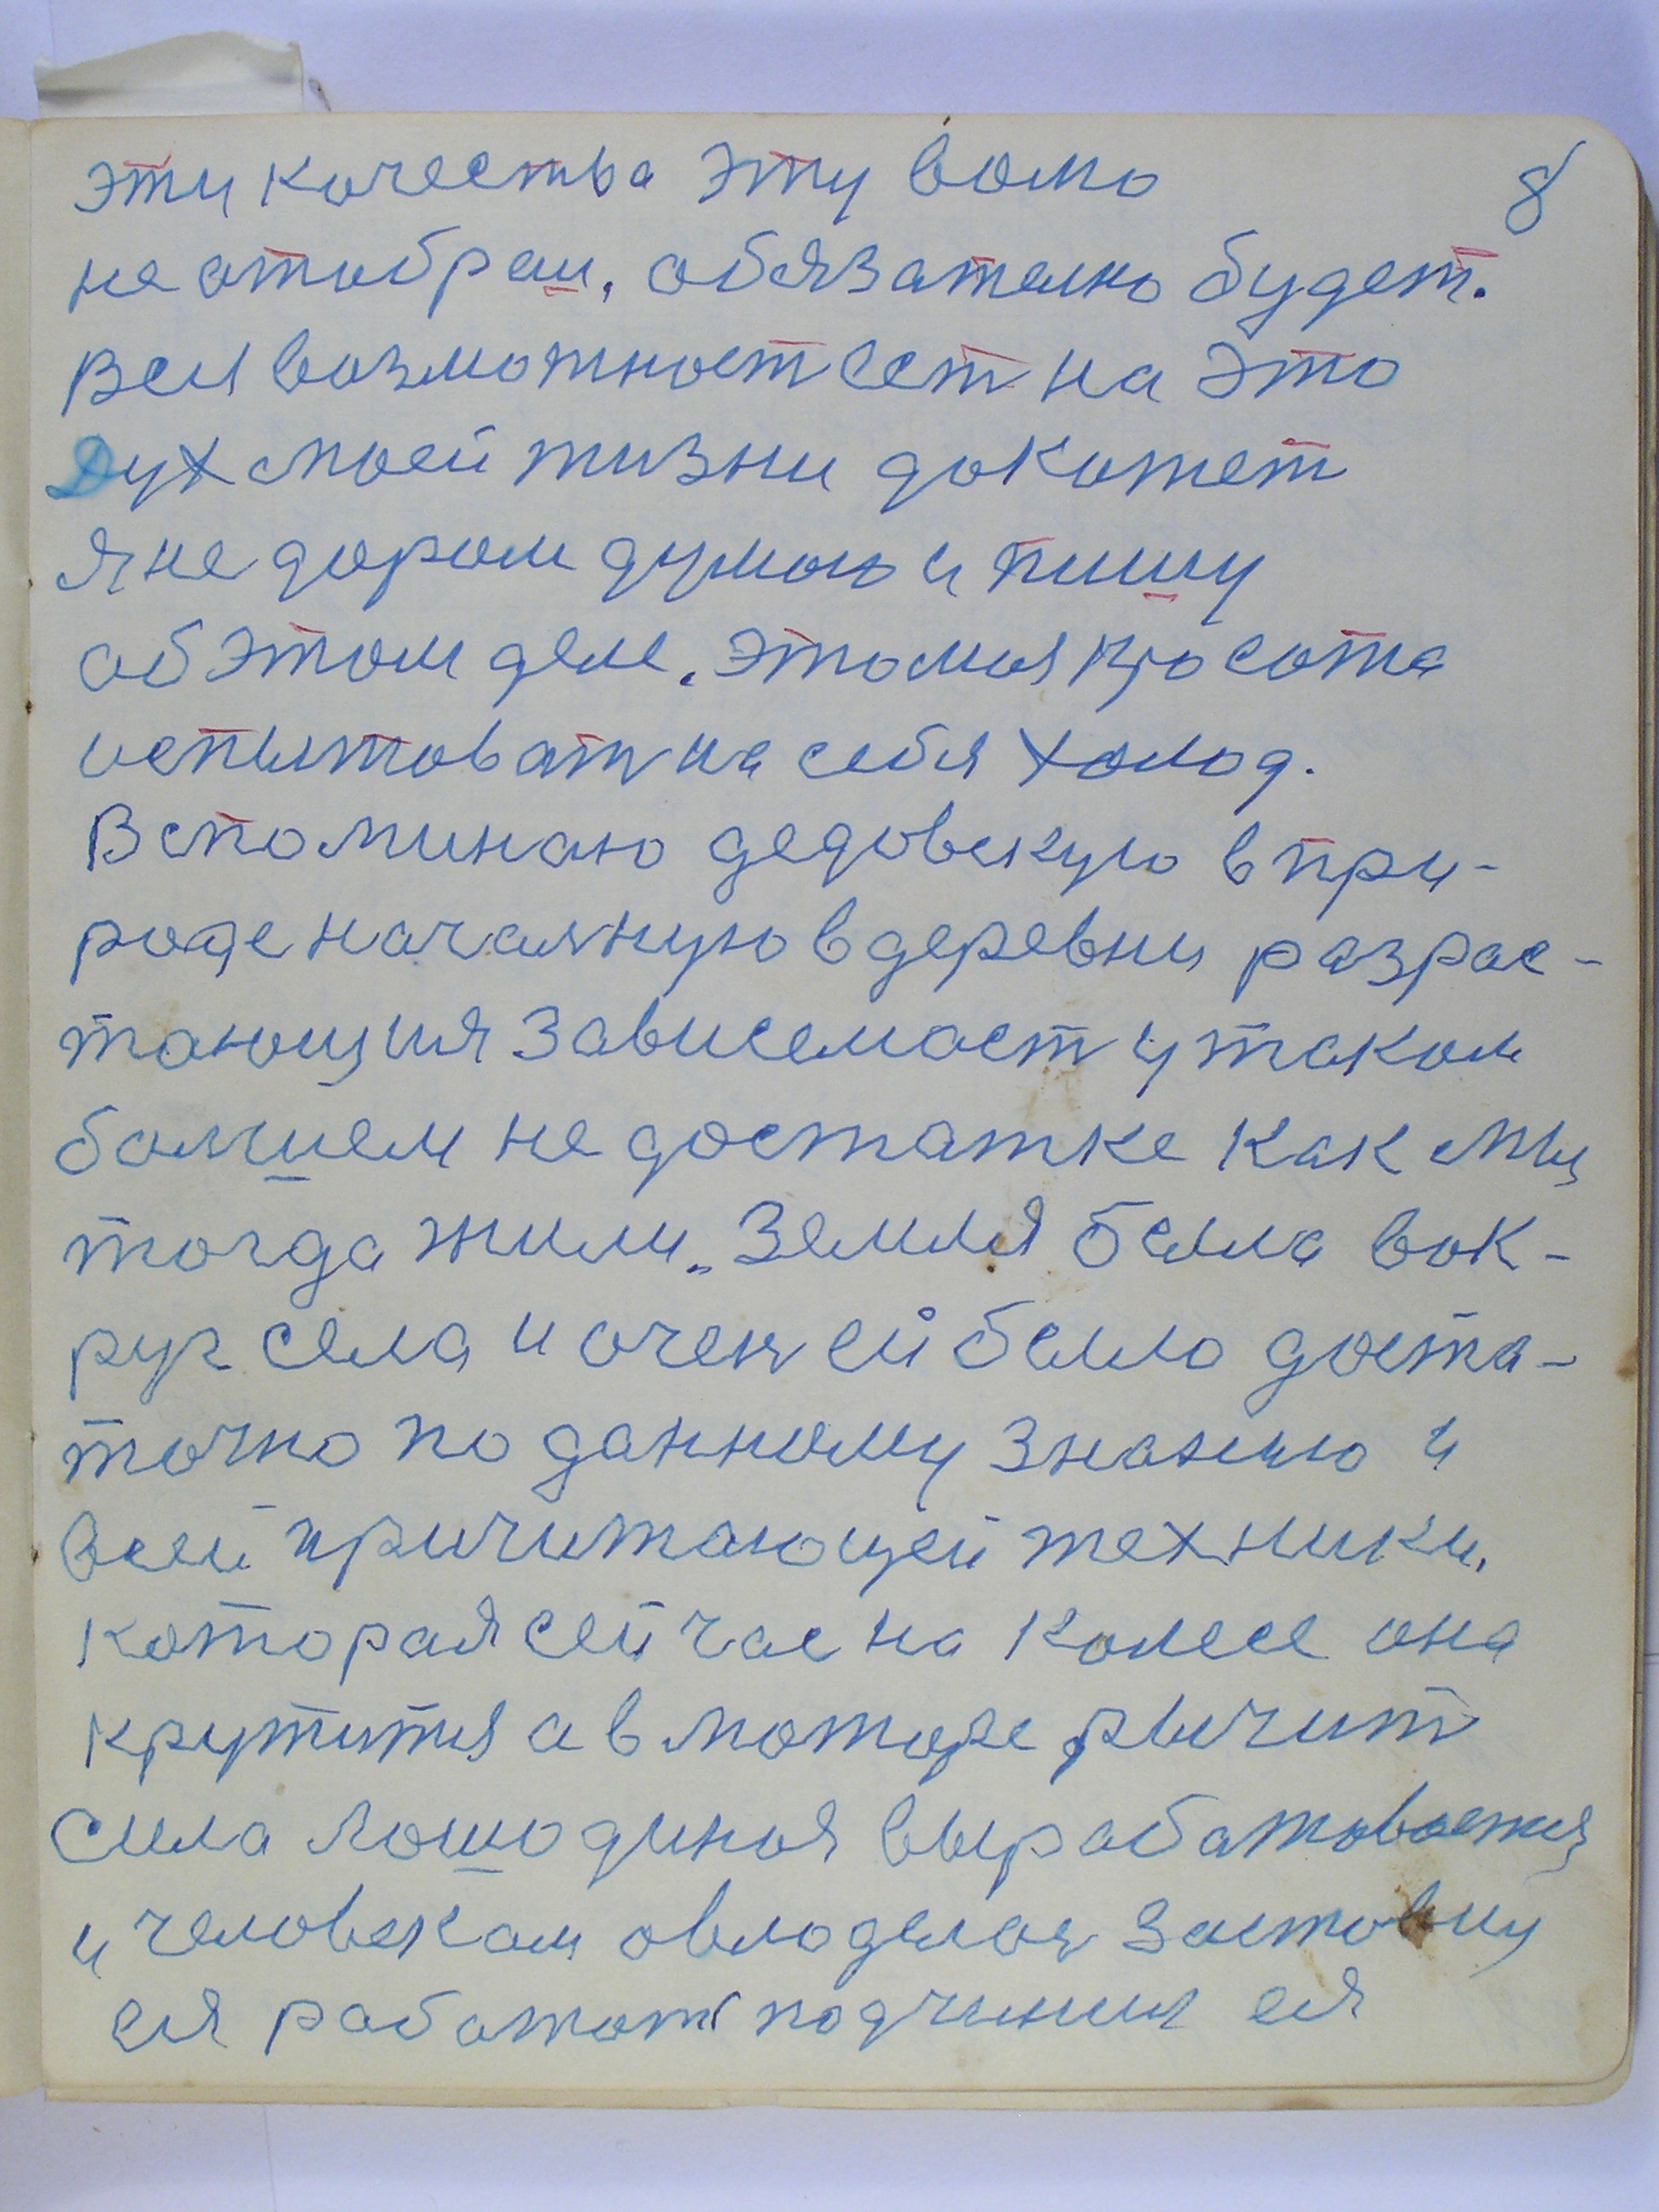 8
эти качества эту волю
не отобрал, обязателно будет.
Вся возможност ест на это
Дух моей жизни докажет
Я не даром думаю и пишу
об этом деле. это моя красота
испытоват на себя холод.
Вспоминаю дедовскую в при-
роде началную в деревни разрас-
тающия зависемост и таком
болшем не достатке как мы
тогда жили. Земля была вок-
руг села и очен ей было доста-
точно по данному знанию и
всей причитающей техники.
которая сейчас на колесе она
крутится а в моторе рычит
сила лошодиная вырабатовается
и человеком овлоделая заставил
ея работат подчинил ея